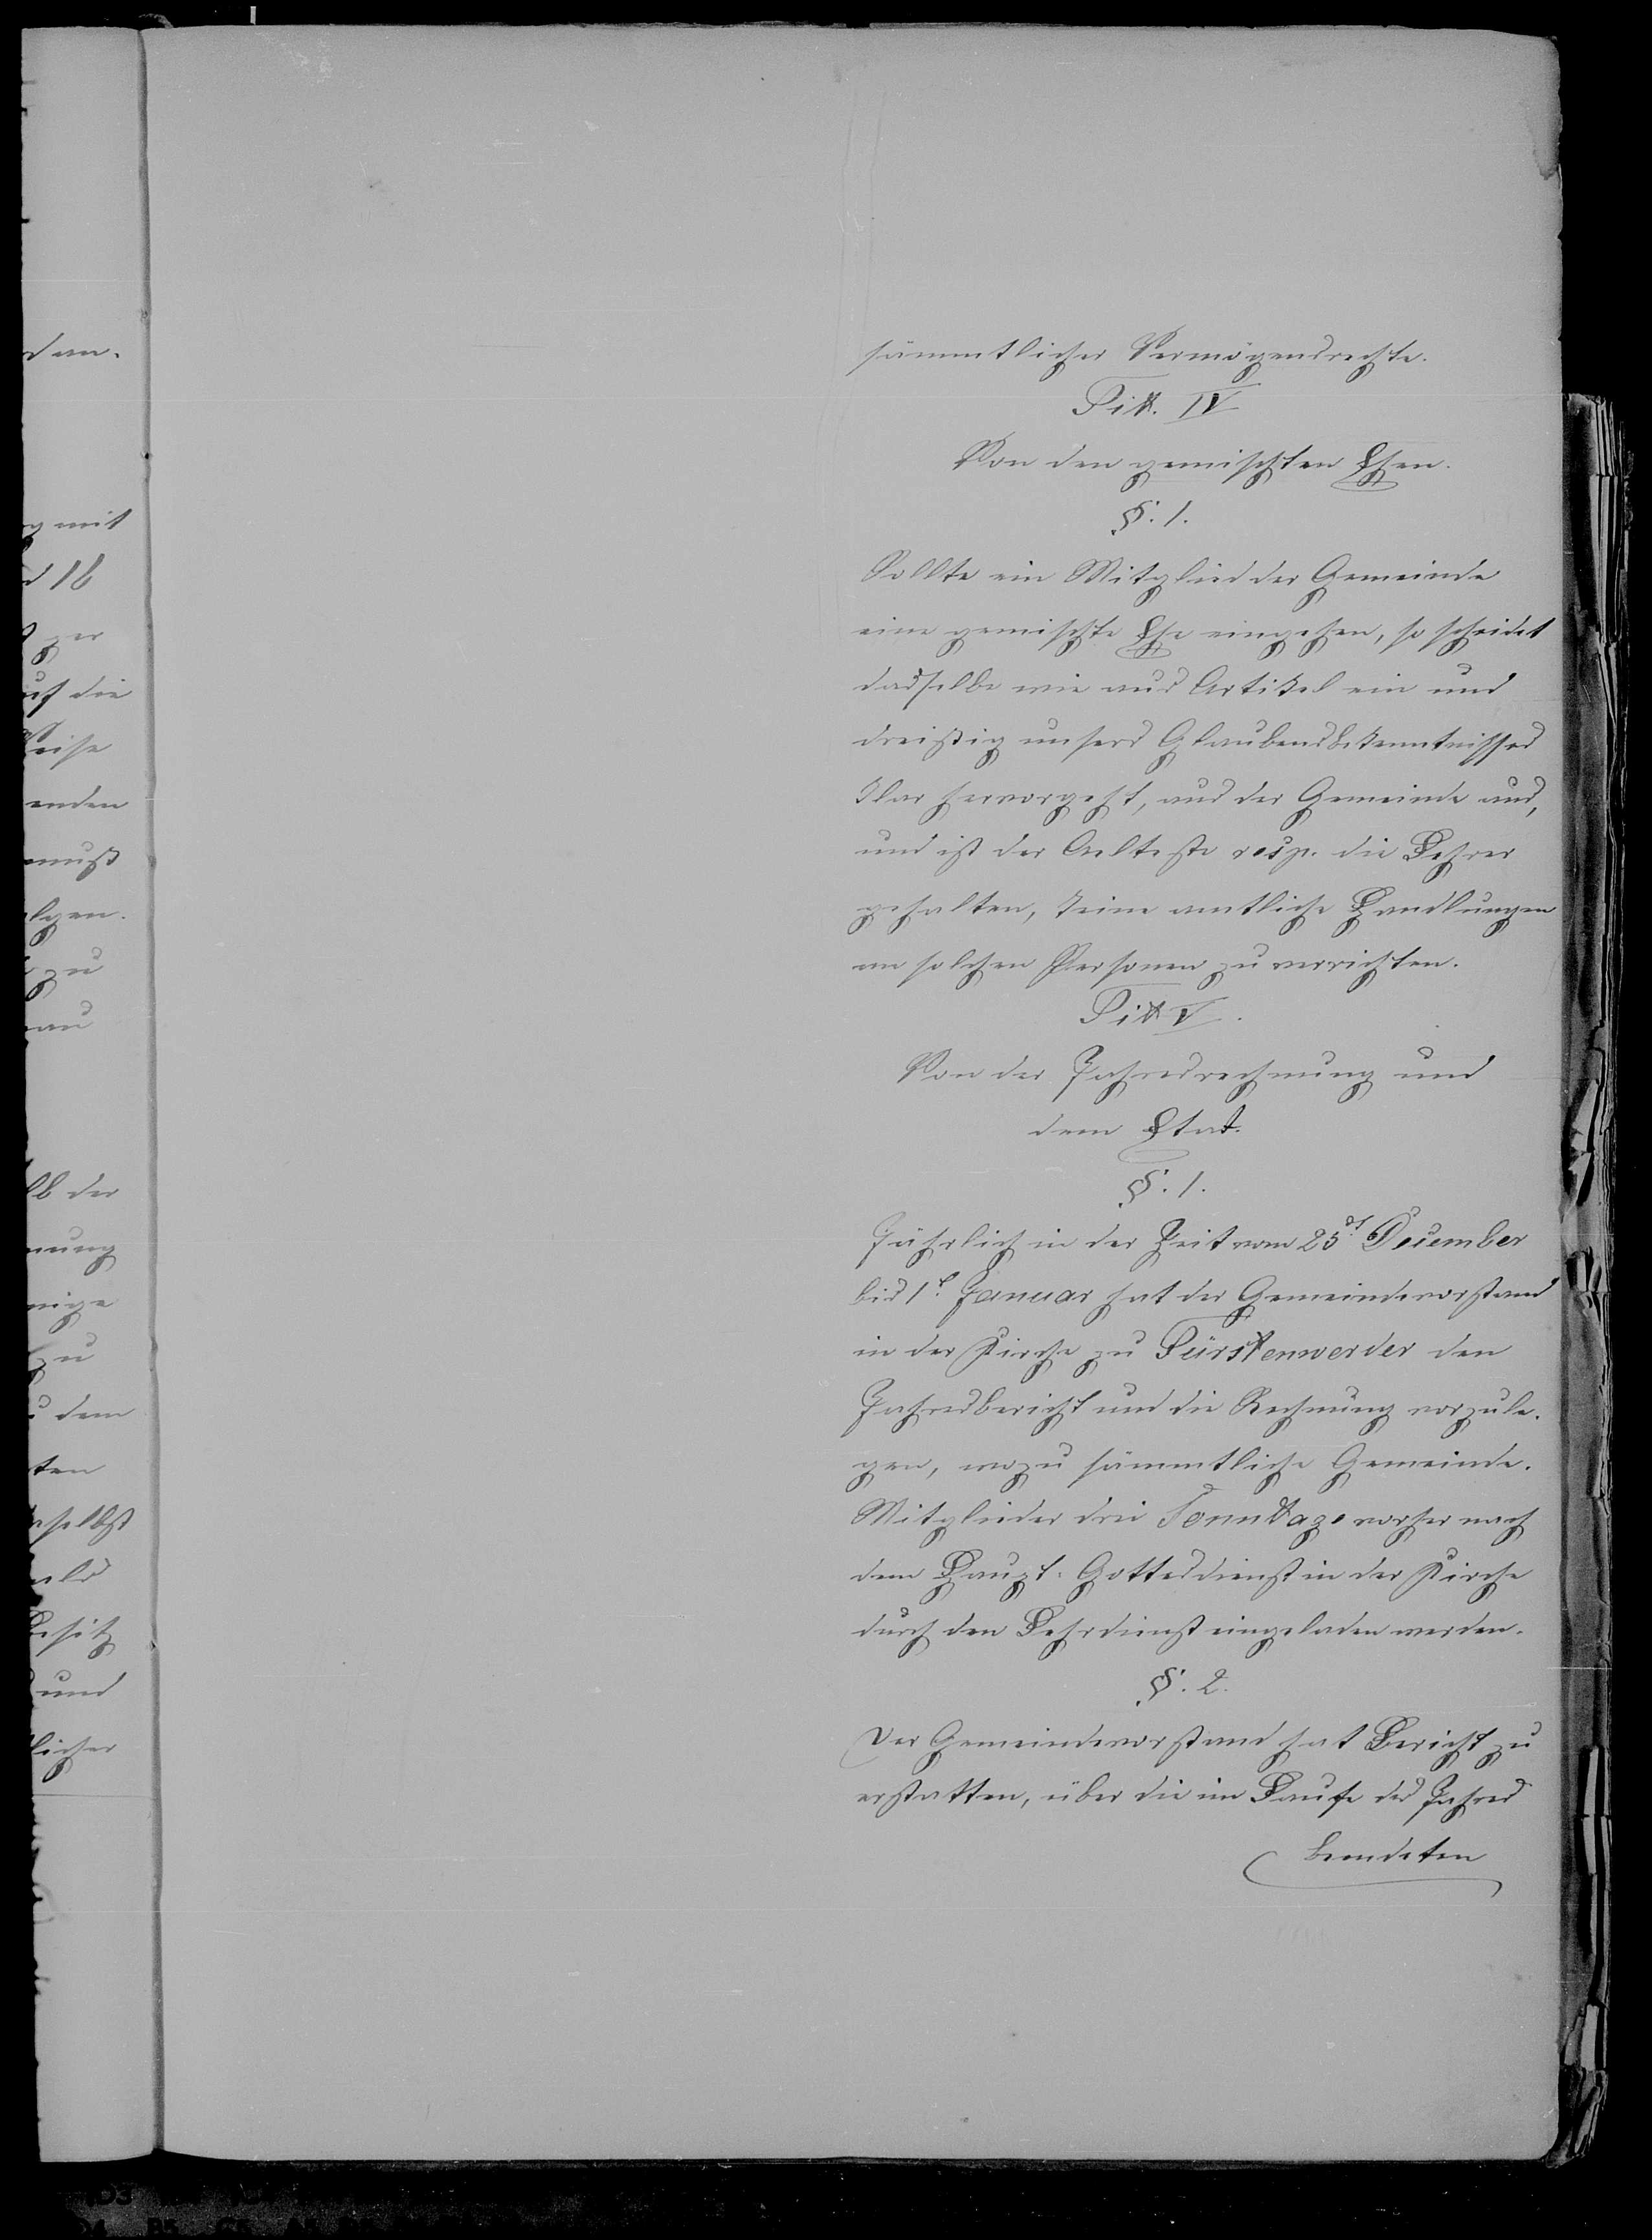 dan-
g mit
d 16
ger
uf die
eise
enden
muß
lgen.
zu
au
lb der
nung
nige
zu
dem
ten
selbst
als
esitz
und
licher
sämmtlicher Vermögensrechte.
Titt. IV
Von den gemischten Ehen.
§. 1.
Sollte ein Mitglied der Gemeinde
eine gemischte Ehe eingehen, so scheidet
dasselbe wie aus Artikel ein und
dreißig unsers Glaubensbekenntnisses
klar hervorgeht, aus der Gemeinde aus,
und ist der Aelteste resp. die Lehrer
gehalten, keine amtliche Handlungen
an solchen Personen zu verrichten.
Titt V.
Von der Jahresrechnung und
dem Etat.
§. 1.
Jährlich in der Zeit vom 25t. December
bis 1t. Januar hat der Gemeindevorstand
in der Kirche zu Fürstenwerder den
Jahresbericht und die Rechnung vorzule-
gen, wozu sämmtliche Gemeinde-
Mitglieder drei Sonntage vorher nach
dem Haupt-Gottesdienst in der Kirche
durch den Lehrdienst eingeladen werden.
§. 2.
Der Gemeindevorstand hat Bericht zu
erstatten, über die im Laufe des Jahres
beendeten